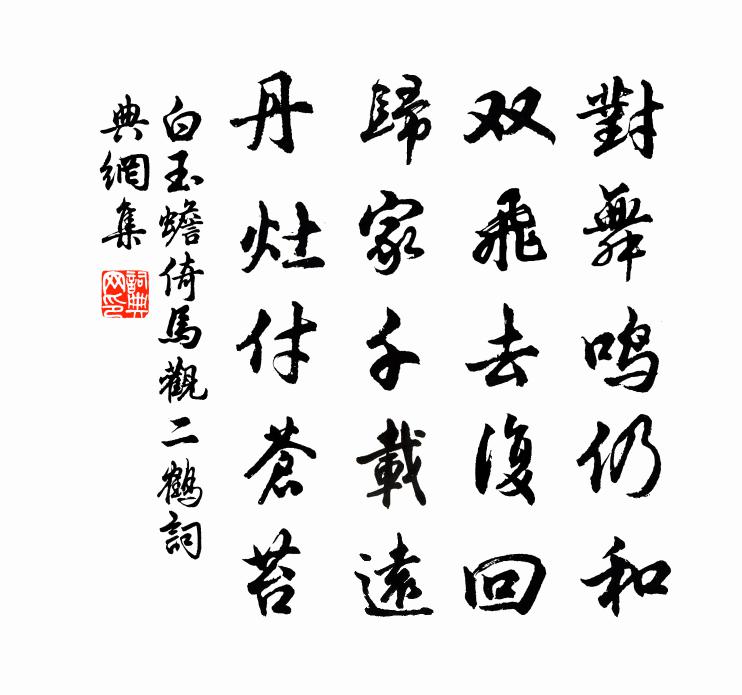 對舞鳴仍和
双飛去復回
歸家千載遠
丹灶付蒼苔
白玉蟾倚馬觀二鶴詞
典網集
詞典
网印